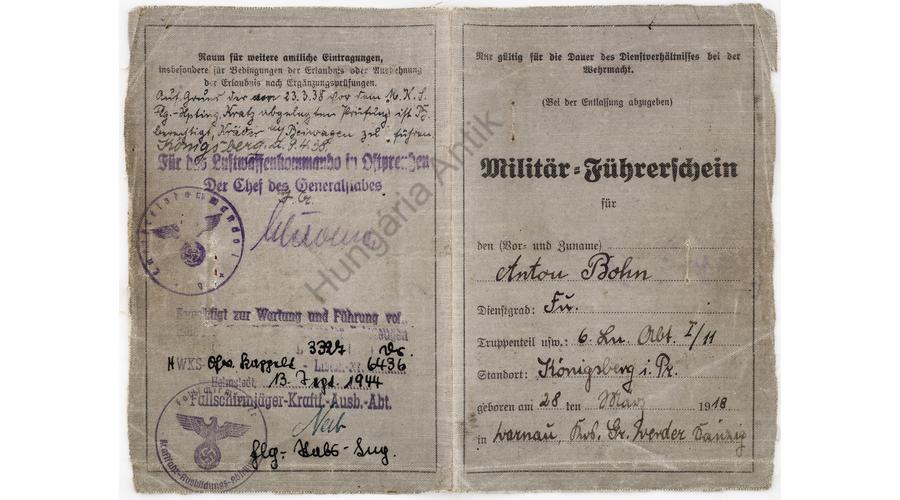 Raum für weitere amtliche Eintragungen,
insbesondere für Bedingungen der Erlaubnis oder Ausdehnung
der Erlaubnis nach Ergänzungsprüfungen.
Auf Grund der am 23.3.38 vor dem M.K.S.
Kratz abgelegten Prüfung ist B.
berechtigt, Kräder m/ Beiwagen zu führen
Königsberg, d. 9.4.38.
Für das Luftwaffenkommando in Ostpreußen
Der Chef des Generalstabes
J. A.
Berechtigt zur Wartung und Führung von
3327
HWKS 6436
Helmstedt, 13. Sept. 1944
Fallschirmjäger-Kraftf.-Ausb.-Abt.
Flg.- Stabs-Ing.
Nur gültig für die Dauer des Dienstverhältnisses bei der
Wehrmacht.
(Bei der Entlassung abzugeben)
Militär-Führerschein
für
den (Vor- und Zuname)
Anton Bohn
Dienstgrad: Fu.
Truppenteil usw.: 6. Ln. Abt. I/11
Standort: Königsberg i. Pr.
geboren am 28 ten März 1918
in Warnau, Krs. Gr. Werder Danzig
Hungária Antik